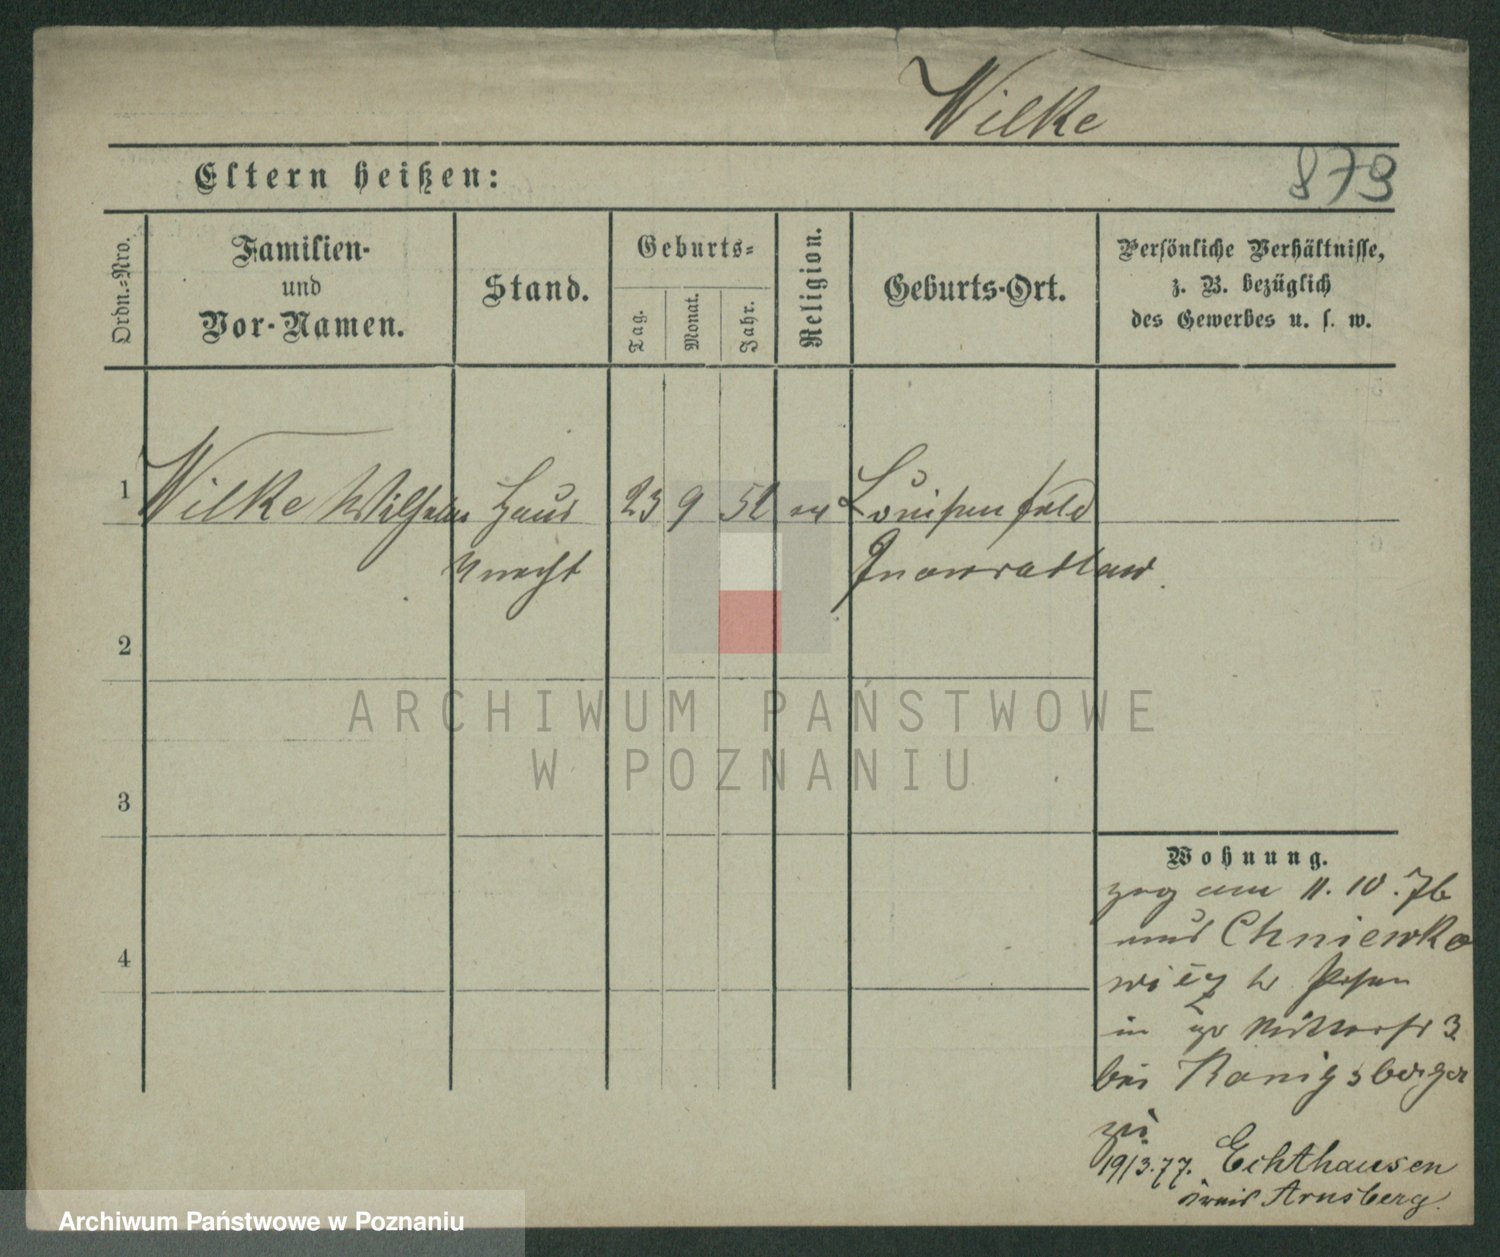 Wilke
Eltern heißen:
879
Ordn.-Nro.
Familien-
und
Vor-Namen.
Stand.
Geburts-
Tag.
Monat.
Jahr.
Religion.
Geburts-Ort.
Persönliche Verhältnisse,
z. B. bezüglich
des Gewerbes u. s. w.
1
Wilke Wilhelm Haus 23 9 52 ev Louisenfeld
knecht Inowratlaw
2
3
4
Wohnung.
zog am 11.10.76
aus Chniewko
wicz Posen
in Ritterstr 3
bei Konigsberger
zu
19/3.77. Echthausen
Kreis Arnsberg.
ARCHIWUM PAŃSTWOWE
W POZNANIU
Archiwum Państwowe w Poznaniu